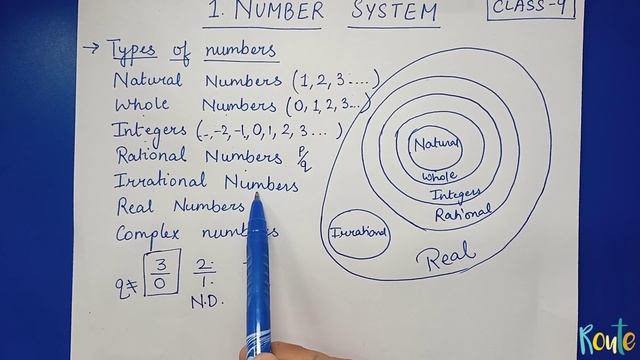 1. NUMBER SYSTEM
CLASS-9
→ Types of numbers
Natural Numbers (1, 2, 3....)
Whole Numbers (0, 1, 2, 3...)
Integers (.., -2, -1, 0, 1, 2, 3 ... )
Rational Numbers p/q
Irrational Numbers
Real Numbers
Complex numbers
q≠ 3/0 2/1
N.D.
Natural
Whole
Integers
Rational
Irrational
Real
Route